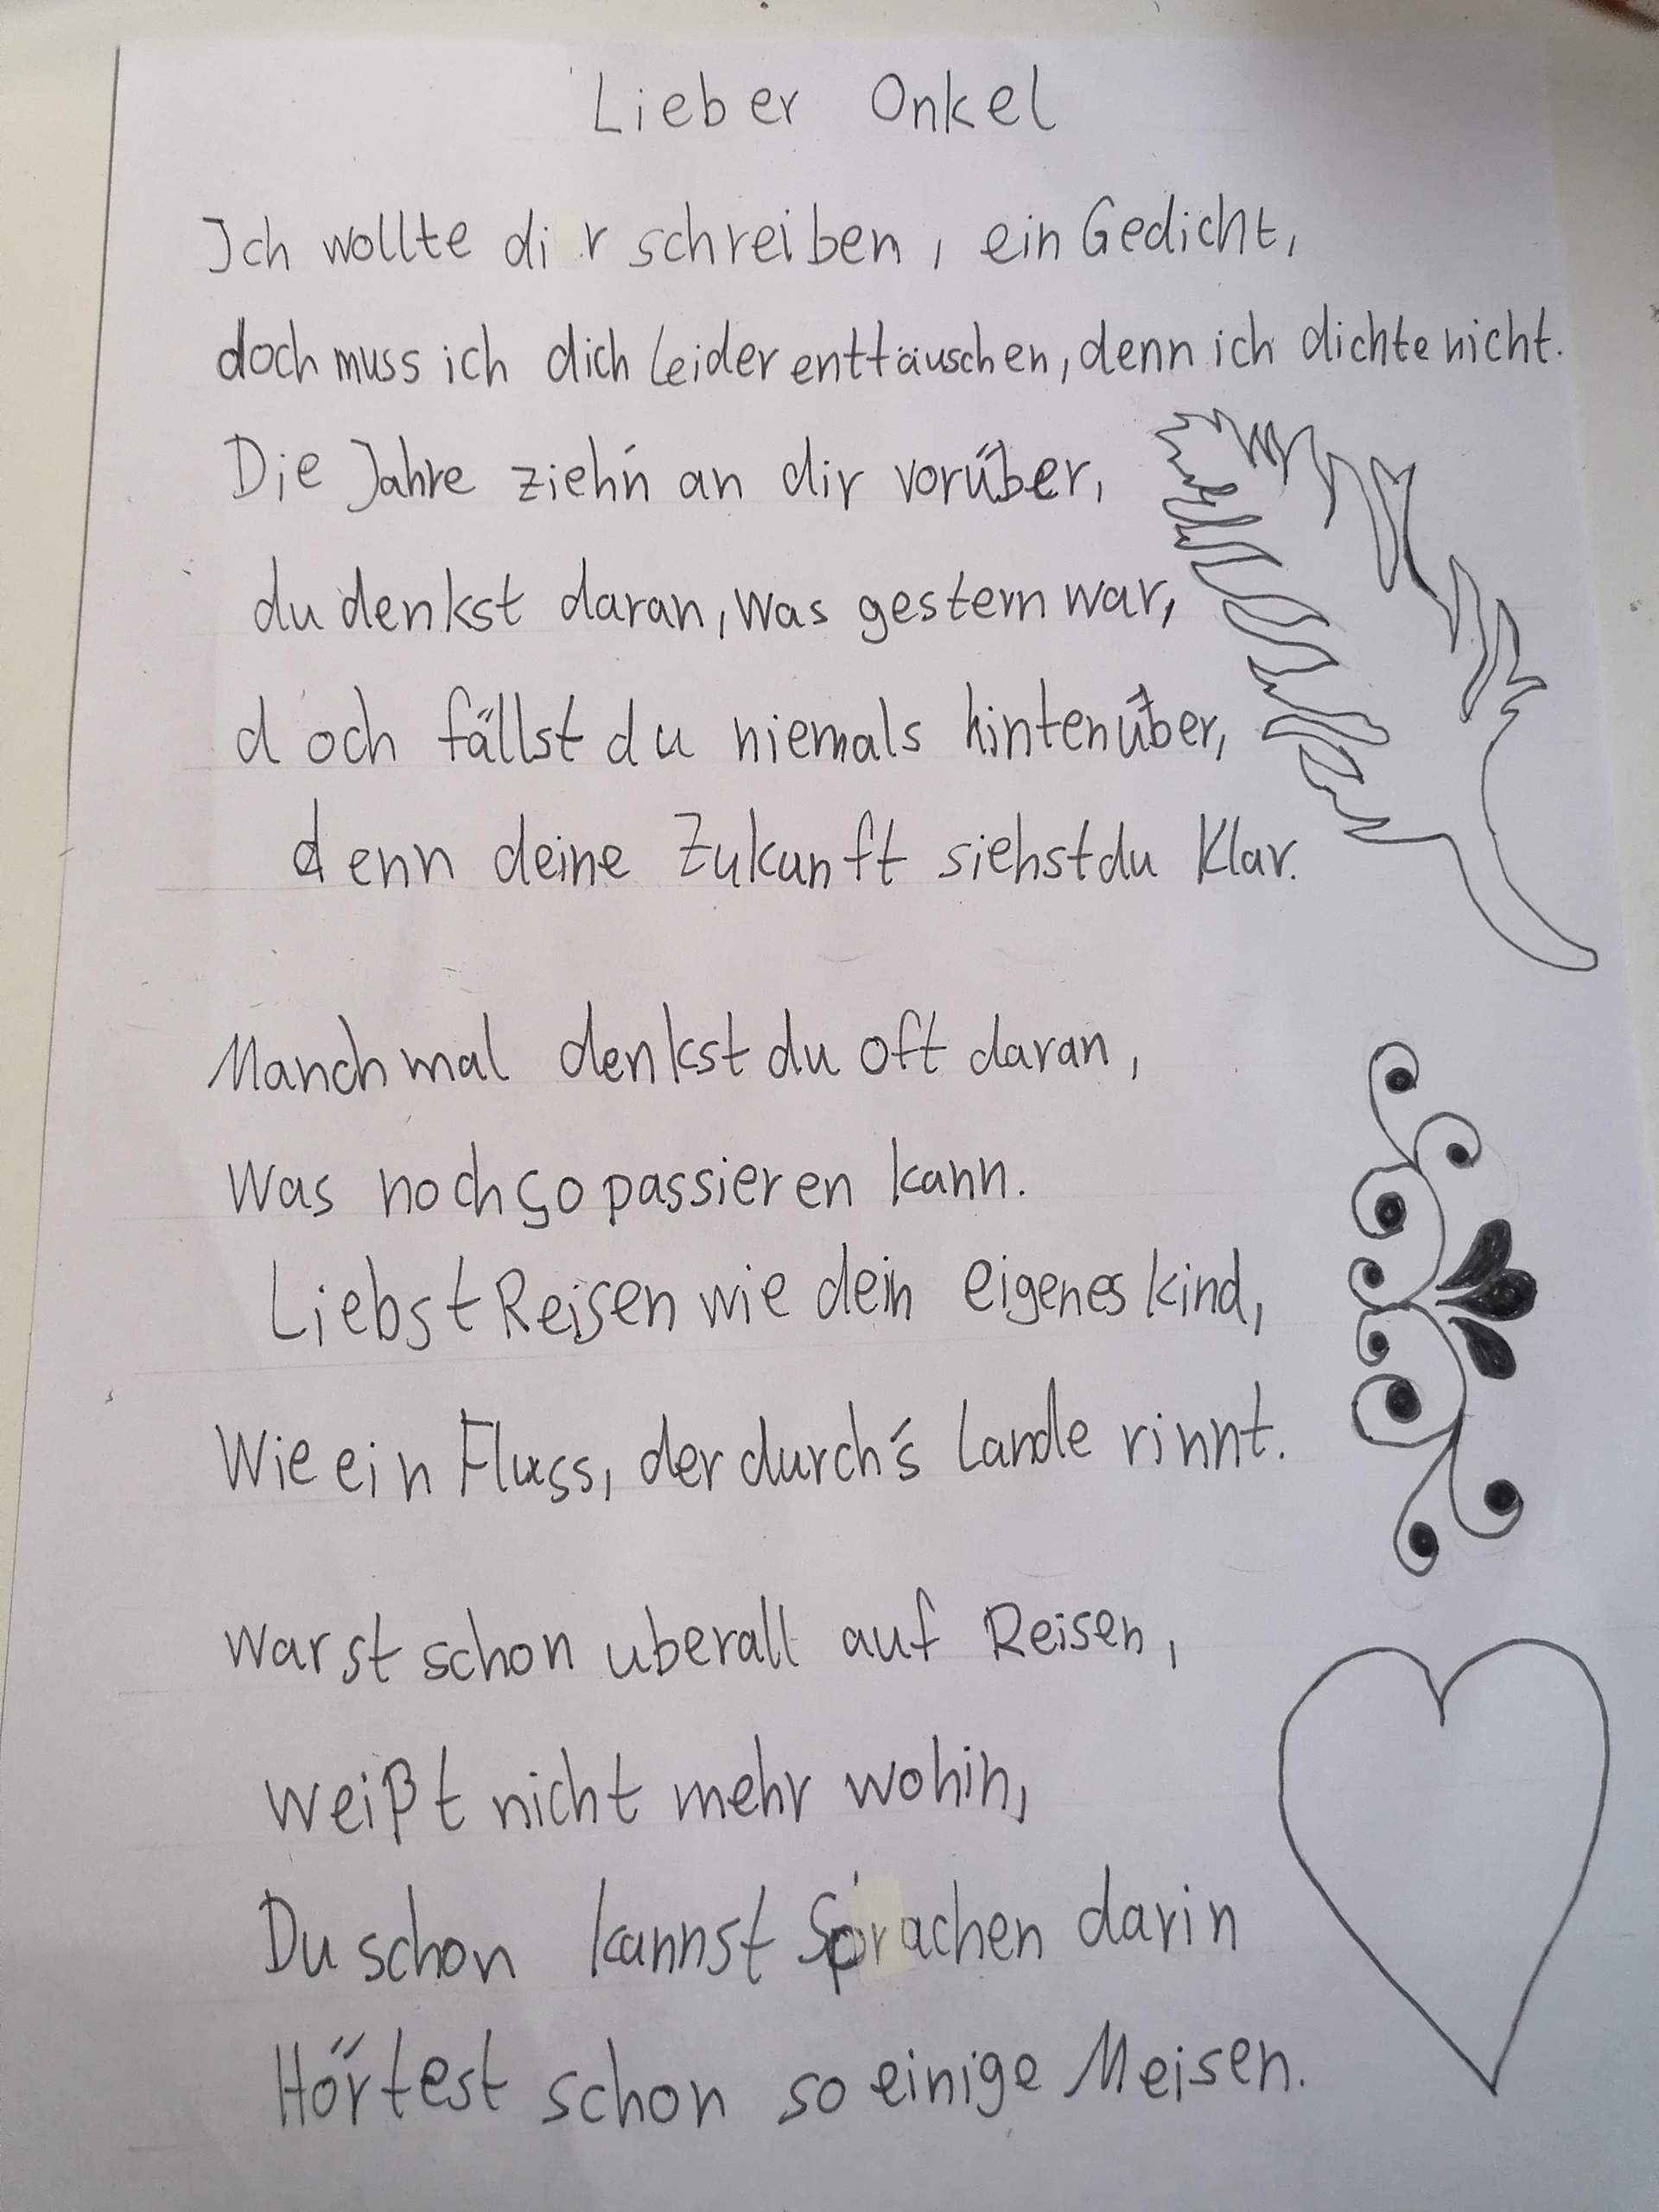 Lieber Onkel
Ich wollte dir schreiben, ein Gedicht,
doch muss ich dich leider enttäuschen, denn ich dichte nicht.
Die Jahre zieh'n an dir vorüber,
du denkst daran, was gestern war,
doch fällst du niemals hintenüber,
denn deine Zukunft siehst du klar.
Manchmal denkst du oft daran,
Was noch so passieren kann.
Liebst Reisen wie dein eigenes kind,
Wie ein Fluss, der durch's Lande rinnt.
Warst schon uberall auf Reisen,
weißt nicht mehr wohin,
Du schon kannst Sprachen darin
Hörtest schon so einige Meisen.